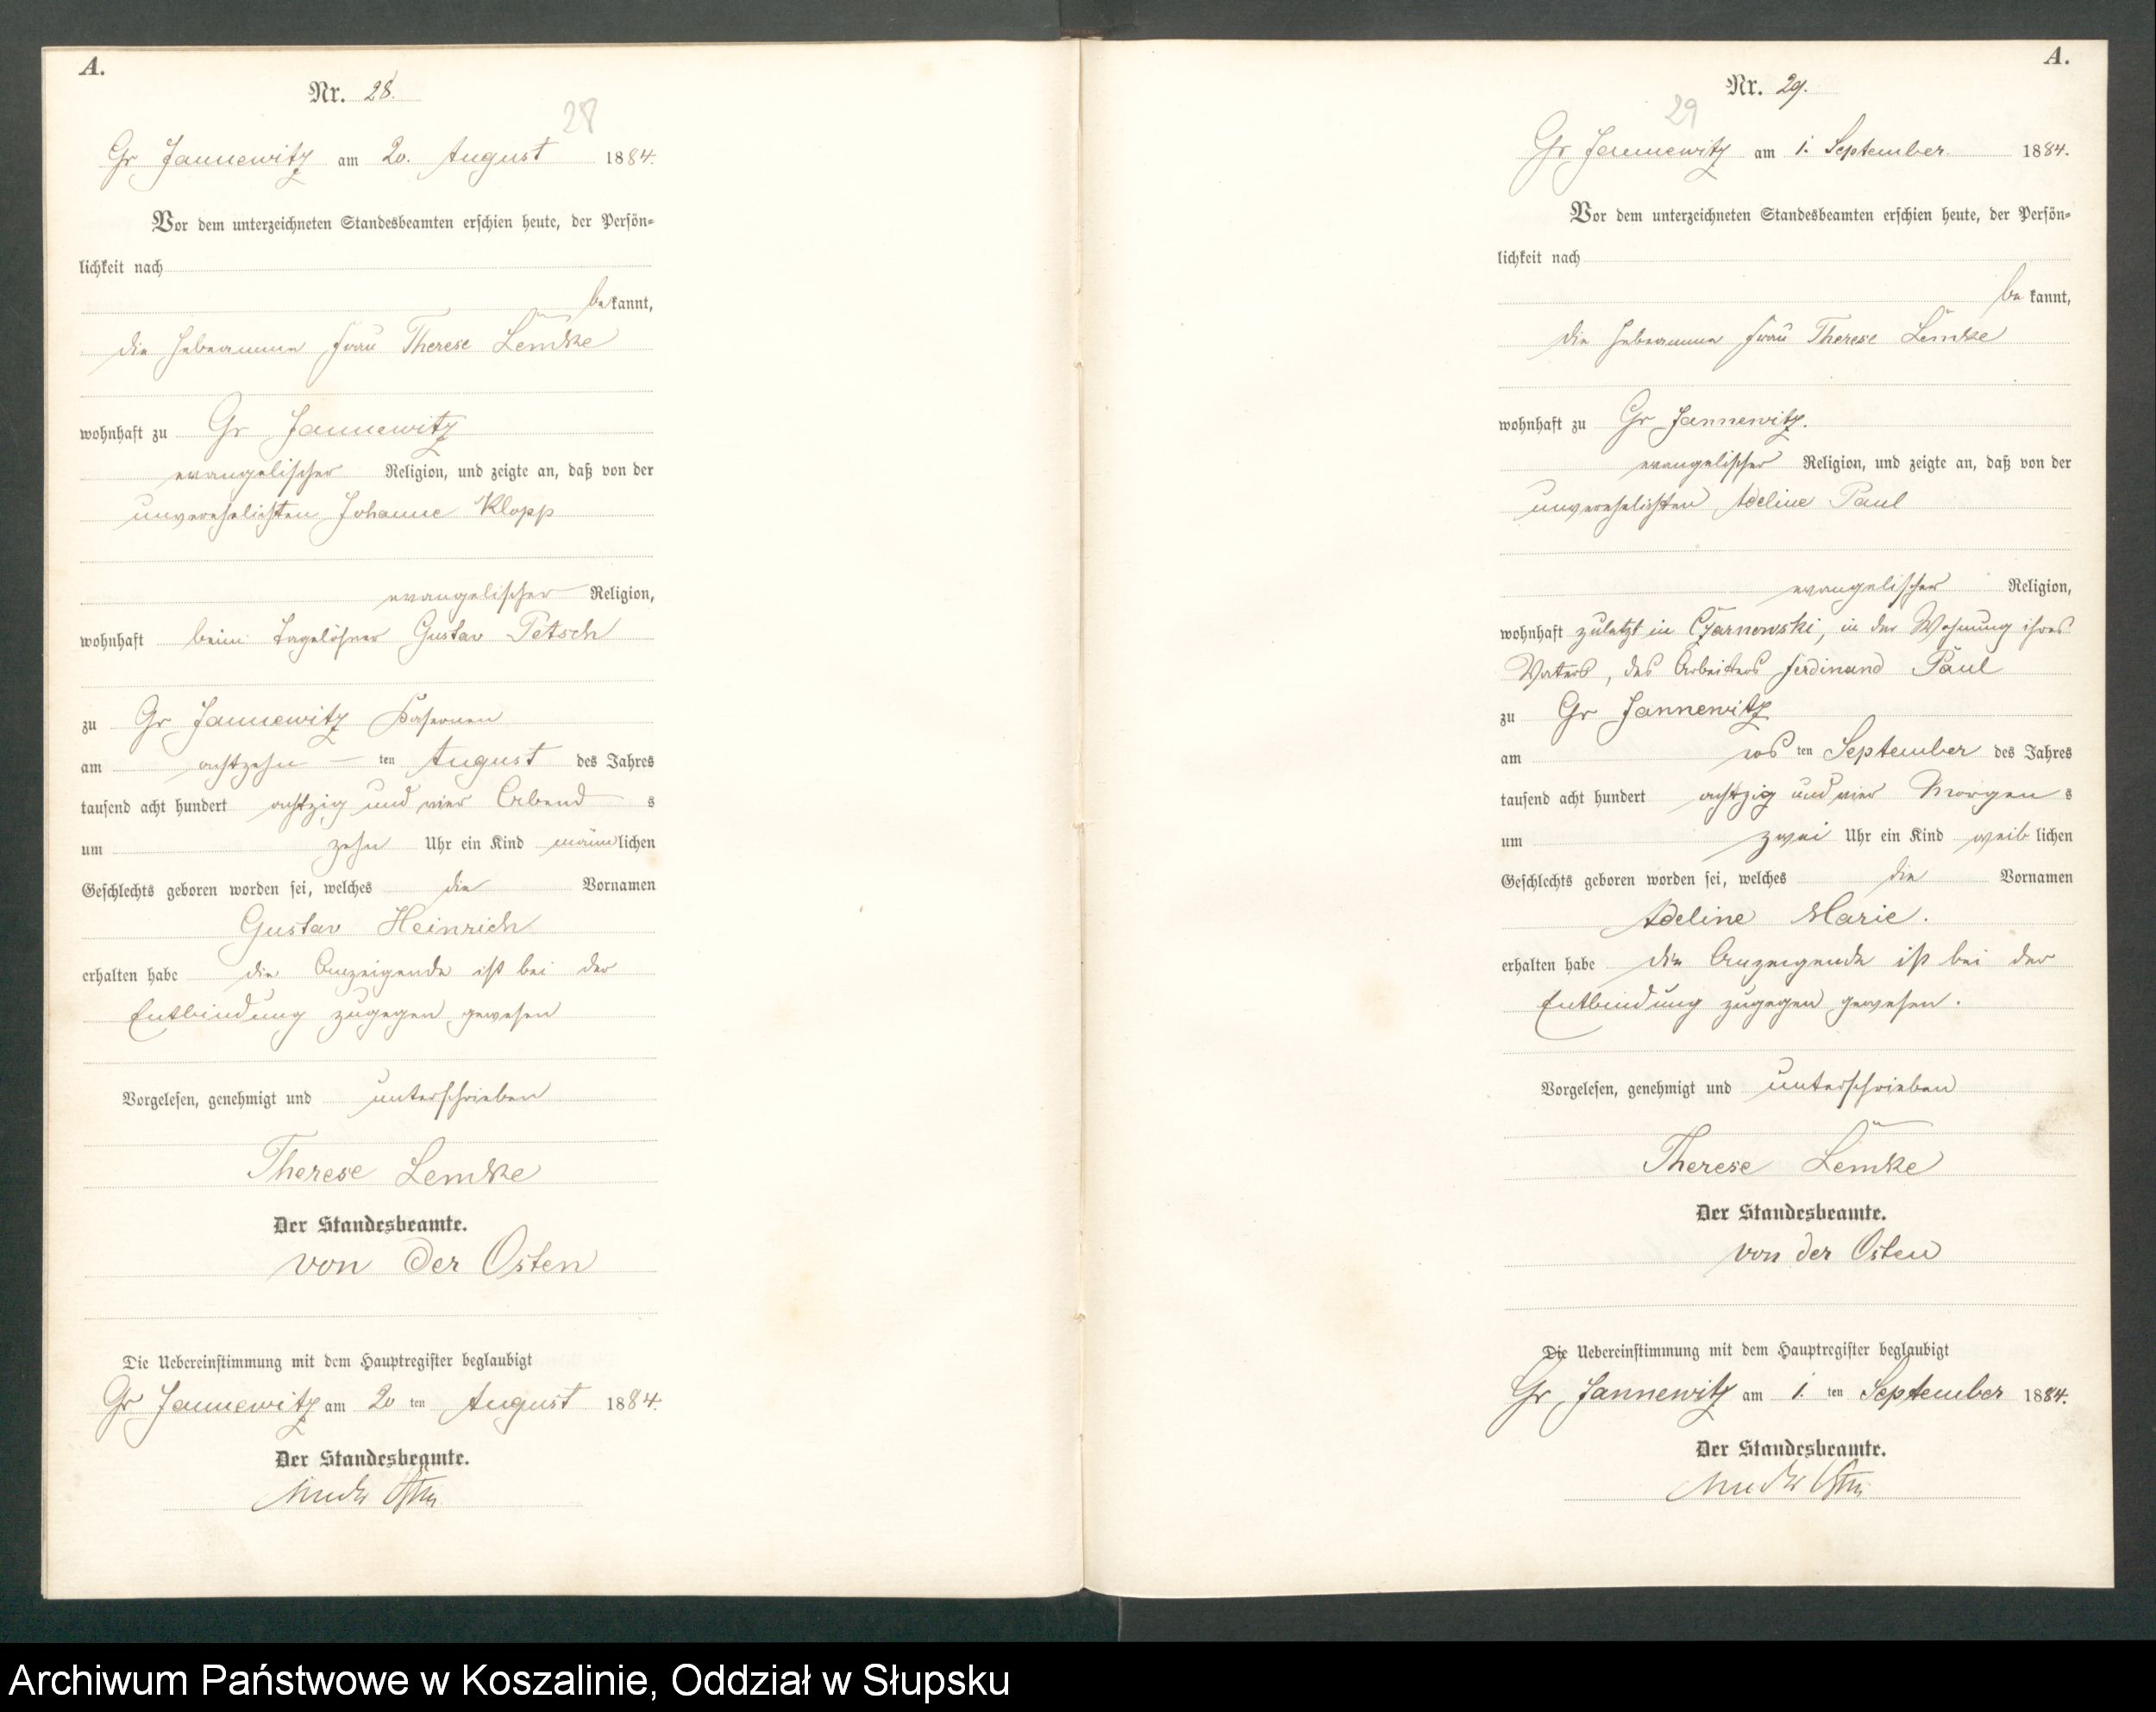 A.
Nr. 28.
28
Gr Jannewitz am 20. August 1884.
Vor dem unterzeichneten Standesbeamten erschien heute, der Persön=
lichkeit nach
bekannt,
die Hebeamme Frau Therese Lemke
wohnhaft zu Gr Jannewitz
evangelischer Religion, und zeigte an, daß von der
unverehelichten Johanne Klopp
evangelischer Religion,
wohnhaft beim Tagelöhner Gustav Petsch
zu Gr Jannewitz
am achtzehn ten August des Jahres
tausend acht hundert achtzig und vier Abends
um zehn Uhr ein Kind männlichen
Geschlechts geboren worden sei, welches die Vornamen
Gustav Heinrich
erhalten habe die Anzeigende ist bei der
Entbindung zugegen gewesen
Vorgelesen, genehmigt und unterschrieben
Therese Lemke
Der Standesbeamte.
von der Osten
Die Uebereinstimmung mit dem Hauptregister beglaubigt
Gr Jannewitz am 20 ten August 1884.
Der Standesbeamte.
von der Osten
A.
Nr. 29.
29
Gr Jannewitz am 1. September 1884.
Vor dem unterzeichneten Standesbeamten erschien heute, der Persön=
lichkeit nach
bekannt,
die Hebeamme Frau Therese Lemke
wohnhaft zu Gr Jannewitz.
evangelischer Religion, und zeigte an, daß von der
unverehelichten Adeline Paul
evangelischer Religion,
wohnhaft zuletzt in Czarnowski, in der Wohnung ihres
Vaters, des Arbeiters Ferdinand Paul
zu Gr Jannewitz
am ten September des Jahres
tausend acht hundert achtzig und vier Morgens
um zwei Uhr ein Kind weiblichen
Geschlechts geboren worden sei, welches die Vornamen
Adeline Marie.
erhalten habe die Anzeigende ist bei der
Entbindung zugegen gewesen.
Vorgelesen, genehmigt und unterschrieben
Therese Lemke
Der Standesbeamte.
von der Osten
Die Uebereinstimmung mit dem Hauptregister beglaubigt
Gr Jannewitz am 1. ten September 1884.
Der Standesbeamte.
von der Osten
Archiwum Państwowe w Koszalinie, Oddział w Słupsku